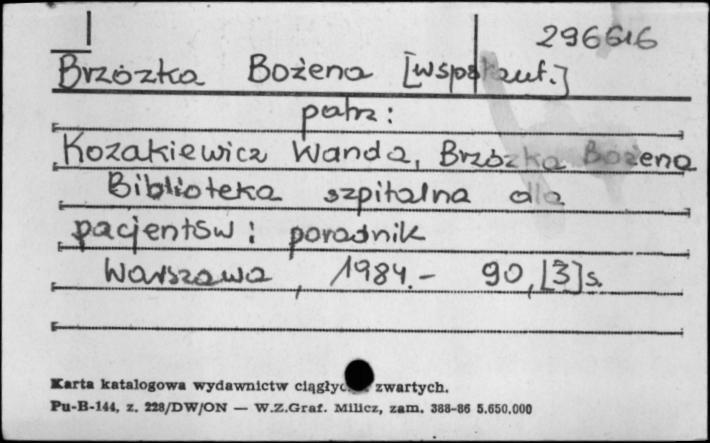 296616
Brzózka Bożena [współaut.]
patrz:
Kozakiewicz Wanda, Brzózka Bożena
Biblioteka szpitalna dla
pacjentów : poradnik
Warszawa, 1984.- 90,[3]s.
Karta katalogowa wydawnictw ciągłyc zwartych.
Pu-B-144, z. 228/DW/ON — W.Z.Graf. Milicz, zam. 388-86 5.650.000